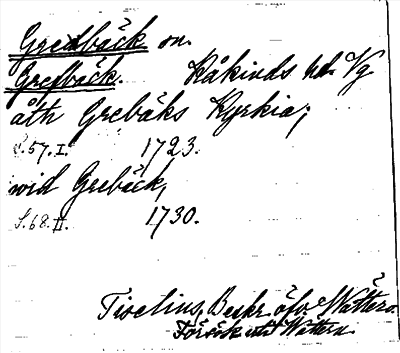 Gredbäck sn.
Grefbäck. Kåkinds hd. Vg
åth Grebäks Kyrkia;
S.57.I. 1723.
wid Grebäck,
S.68.II. 1730.
Tiselius, Beskr. öfv. Wättern.
Försök til Wättern